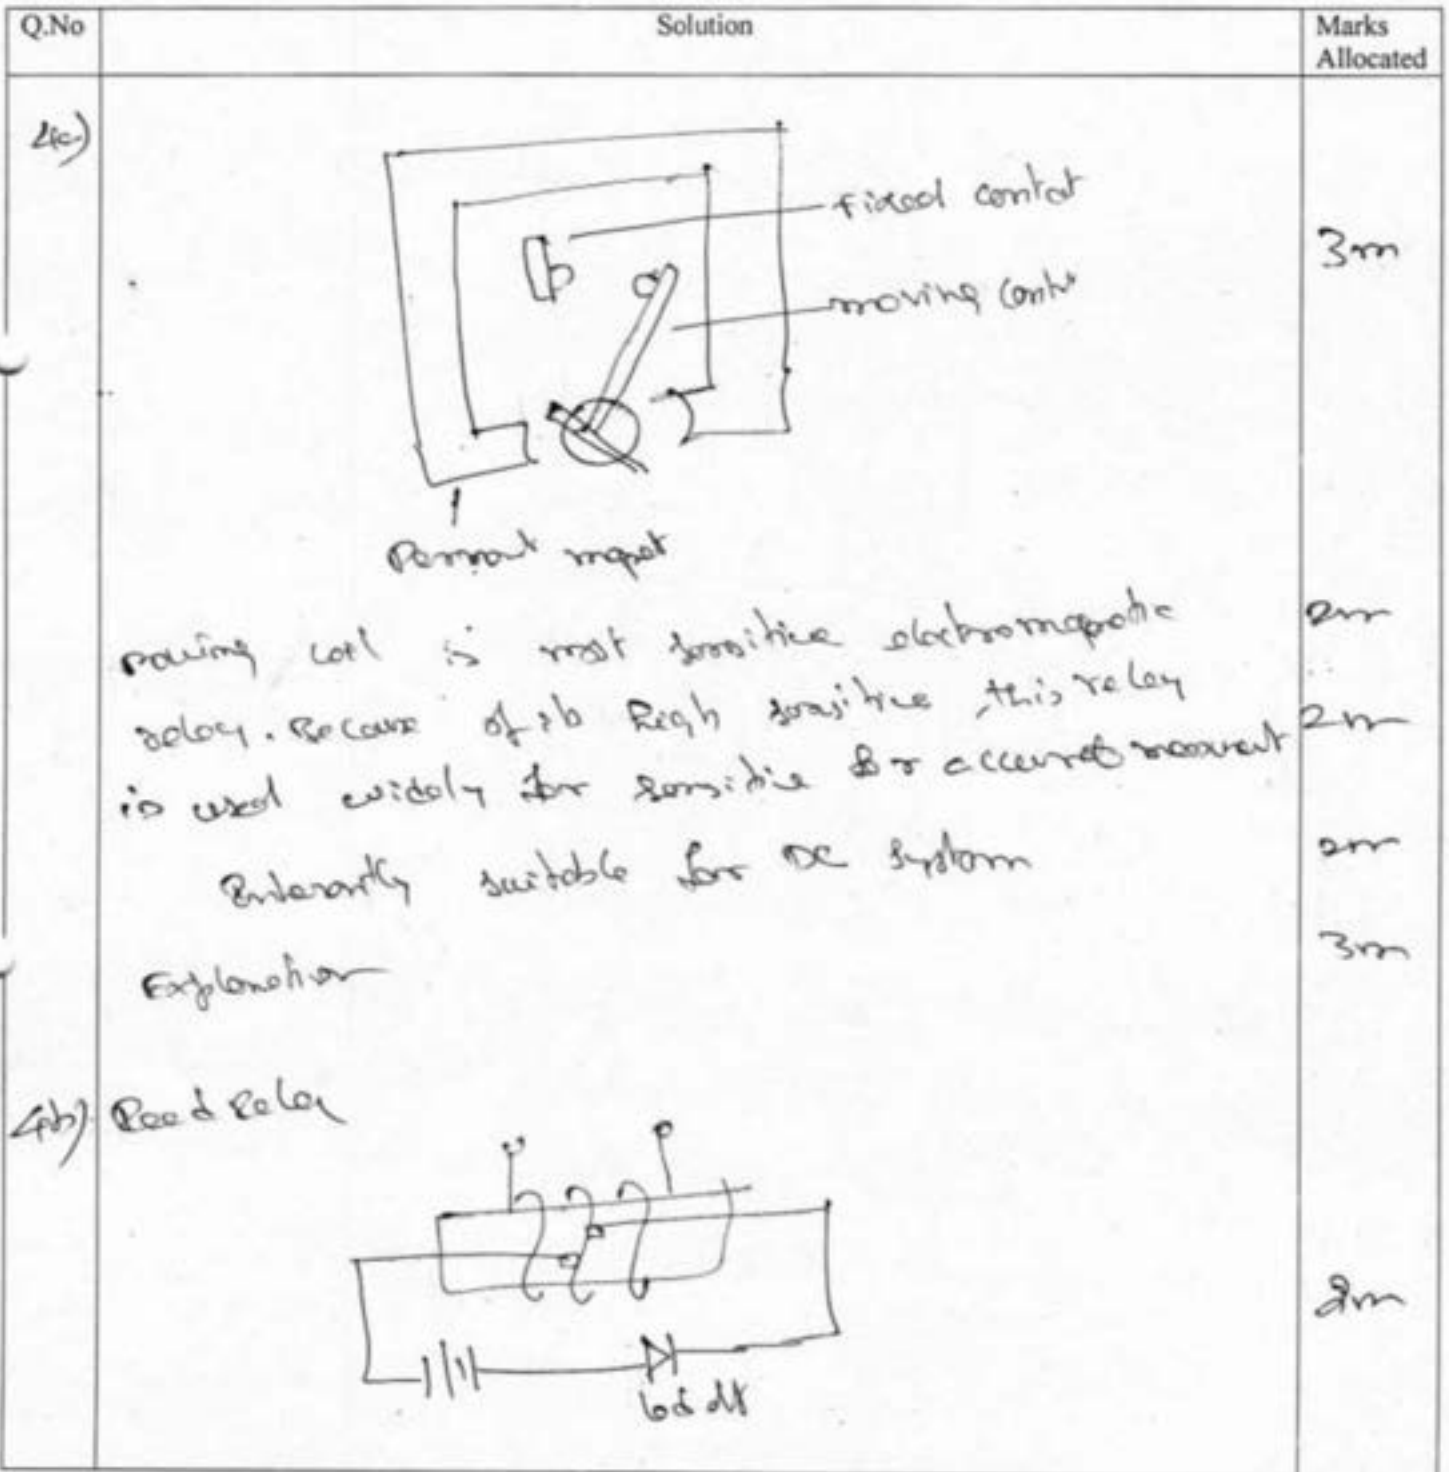 Q.No Solution Marks Allocated
4c)
fixed contat
3m
moving cont
magnet
moving coil is most sensitive electromagnetic 2m
relay. Because of its high sensitive, this relay 2m
is used widely for sensitive & accurate
suitable for DC system 2m
Explanation 3m
4b) Reed Relay
2m